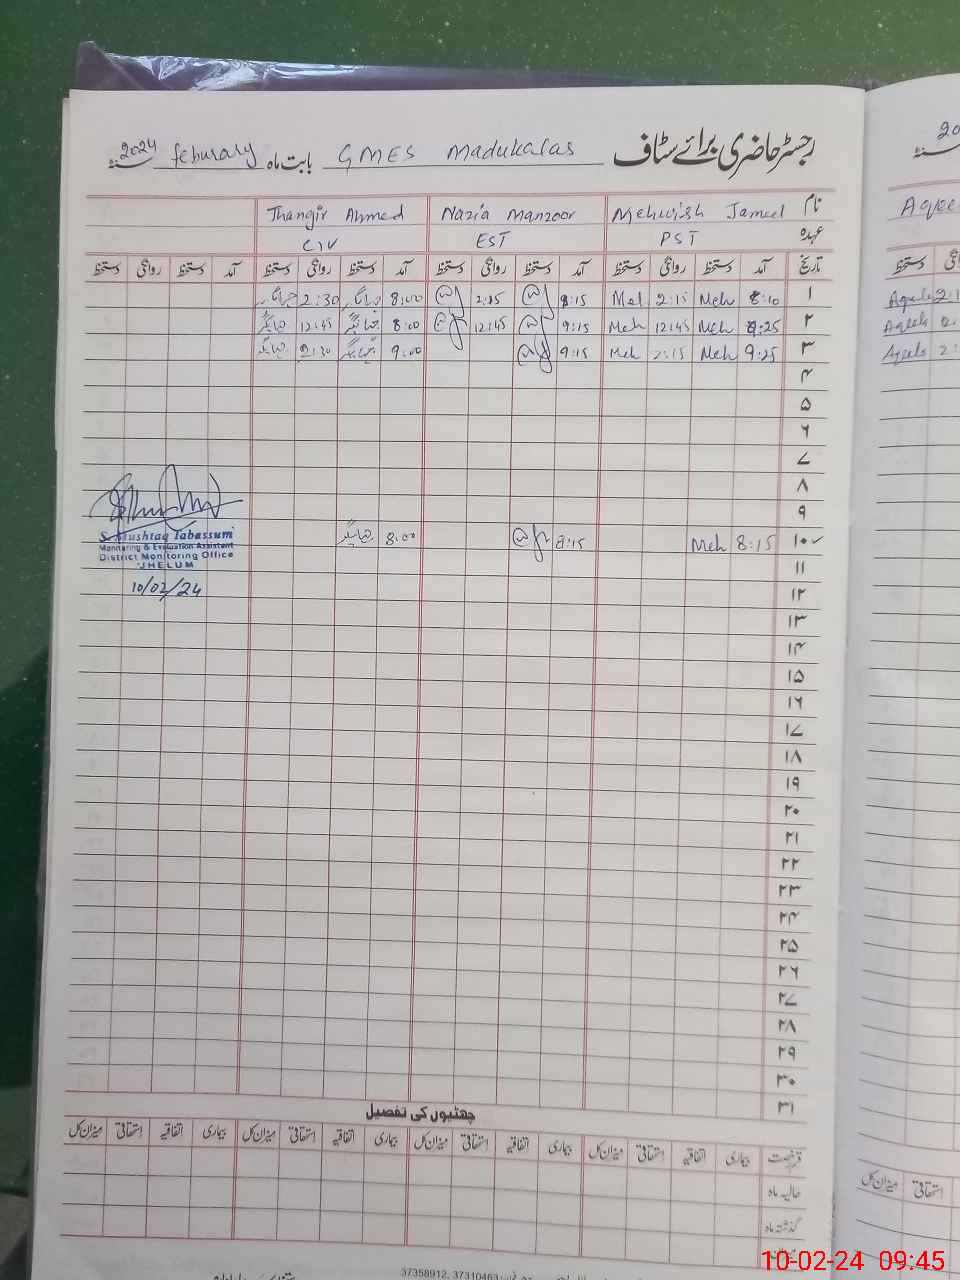 رجسٹر حاضری برائے سٹاف GMES Madukalas بابت ماہ feburary 2024
نام Mehwish Jameel Nazia Manzoor Jhangir Ahmed
عہدہ PST EST CIV
تاریخ آمد دستخط روانگی دستخط آمد دستخط روانگی دستخط آمد دستخط روانگی دستخط آمد دستخط روانگی دستخط
۱ 8:10 Meh 2:15 Meh 8:15 2:15 8:00 2:30
۲ 9:25 Meh 12:45 Meh 9:15 12:45 8:00 12:45
۳ 9:25 Meh 2:15 Meh 9:15 9:00 2:30
۴
۵
۶
۷
۸
۹
۱۰ 8:15 Meh 8:15 8:00
۱۱
۱۲
۱۳
۱۴
۱۵
۱۶
۱۷
۱۸
۱۹
۲۰
۲۱
۲۲
۲۳
۲۴
۲۵
۲۶
۲۷
۲۸
۲۹
۳۰
۳۱
S. Mushtaq Tabassum
Monitoring & Evaluation Assistant
District Monitoring Office
JHELUM
10/02/24
چھٹیوں کی تفصیل
قسم رخصت بیماری اتفاقیہ استحقاقی میزان کل بیماری اتفاقیہ استحقاقی میزان کل بیماری اتفاقیہ استحقاقی میزان کل بیماری اتفاقیہ استحقاقی میزان کل
حالیہ ماہ
گذشتہ ماہ
میزان
37358912, 37310463
20
Aqee
دستخط
Aqeela 2:1
Aqeela
Aqeela 2:
استحقاقی میزان کل
10-02-24 09:45